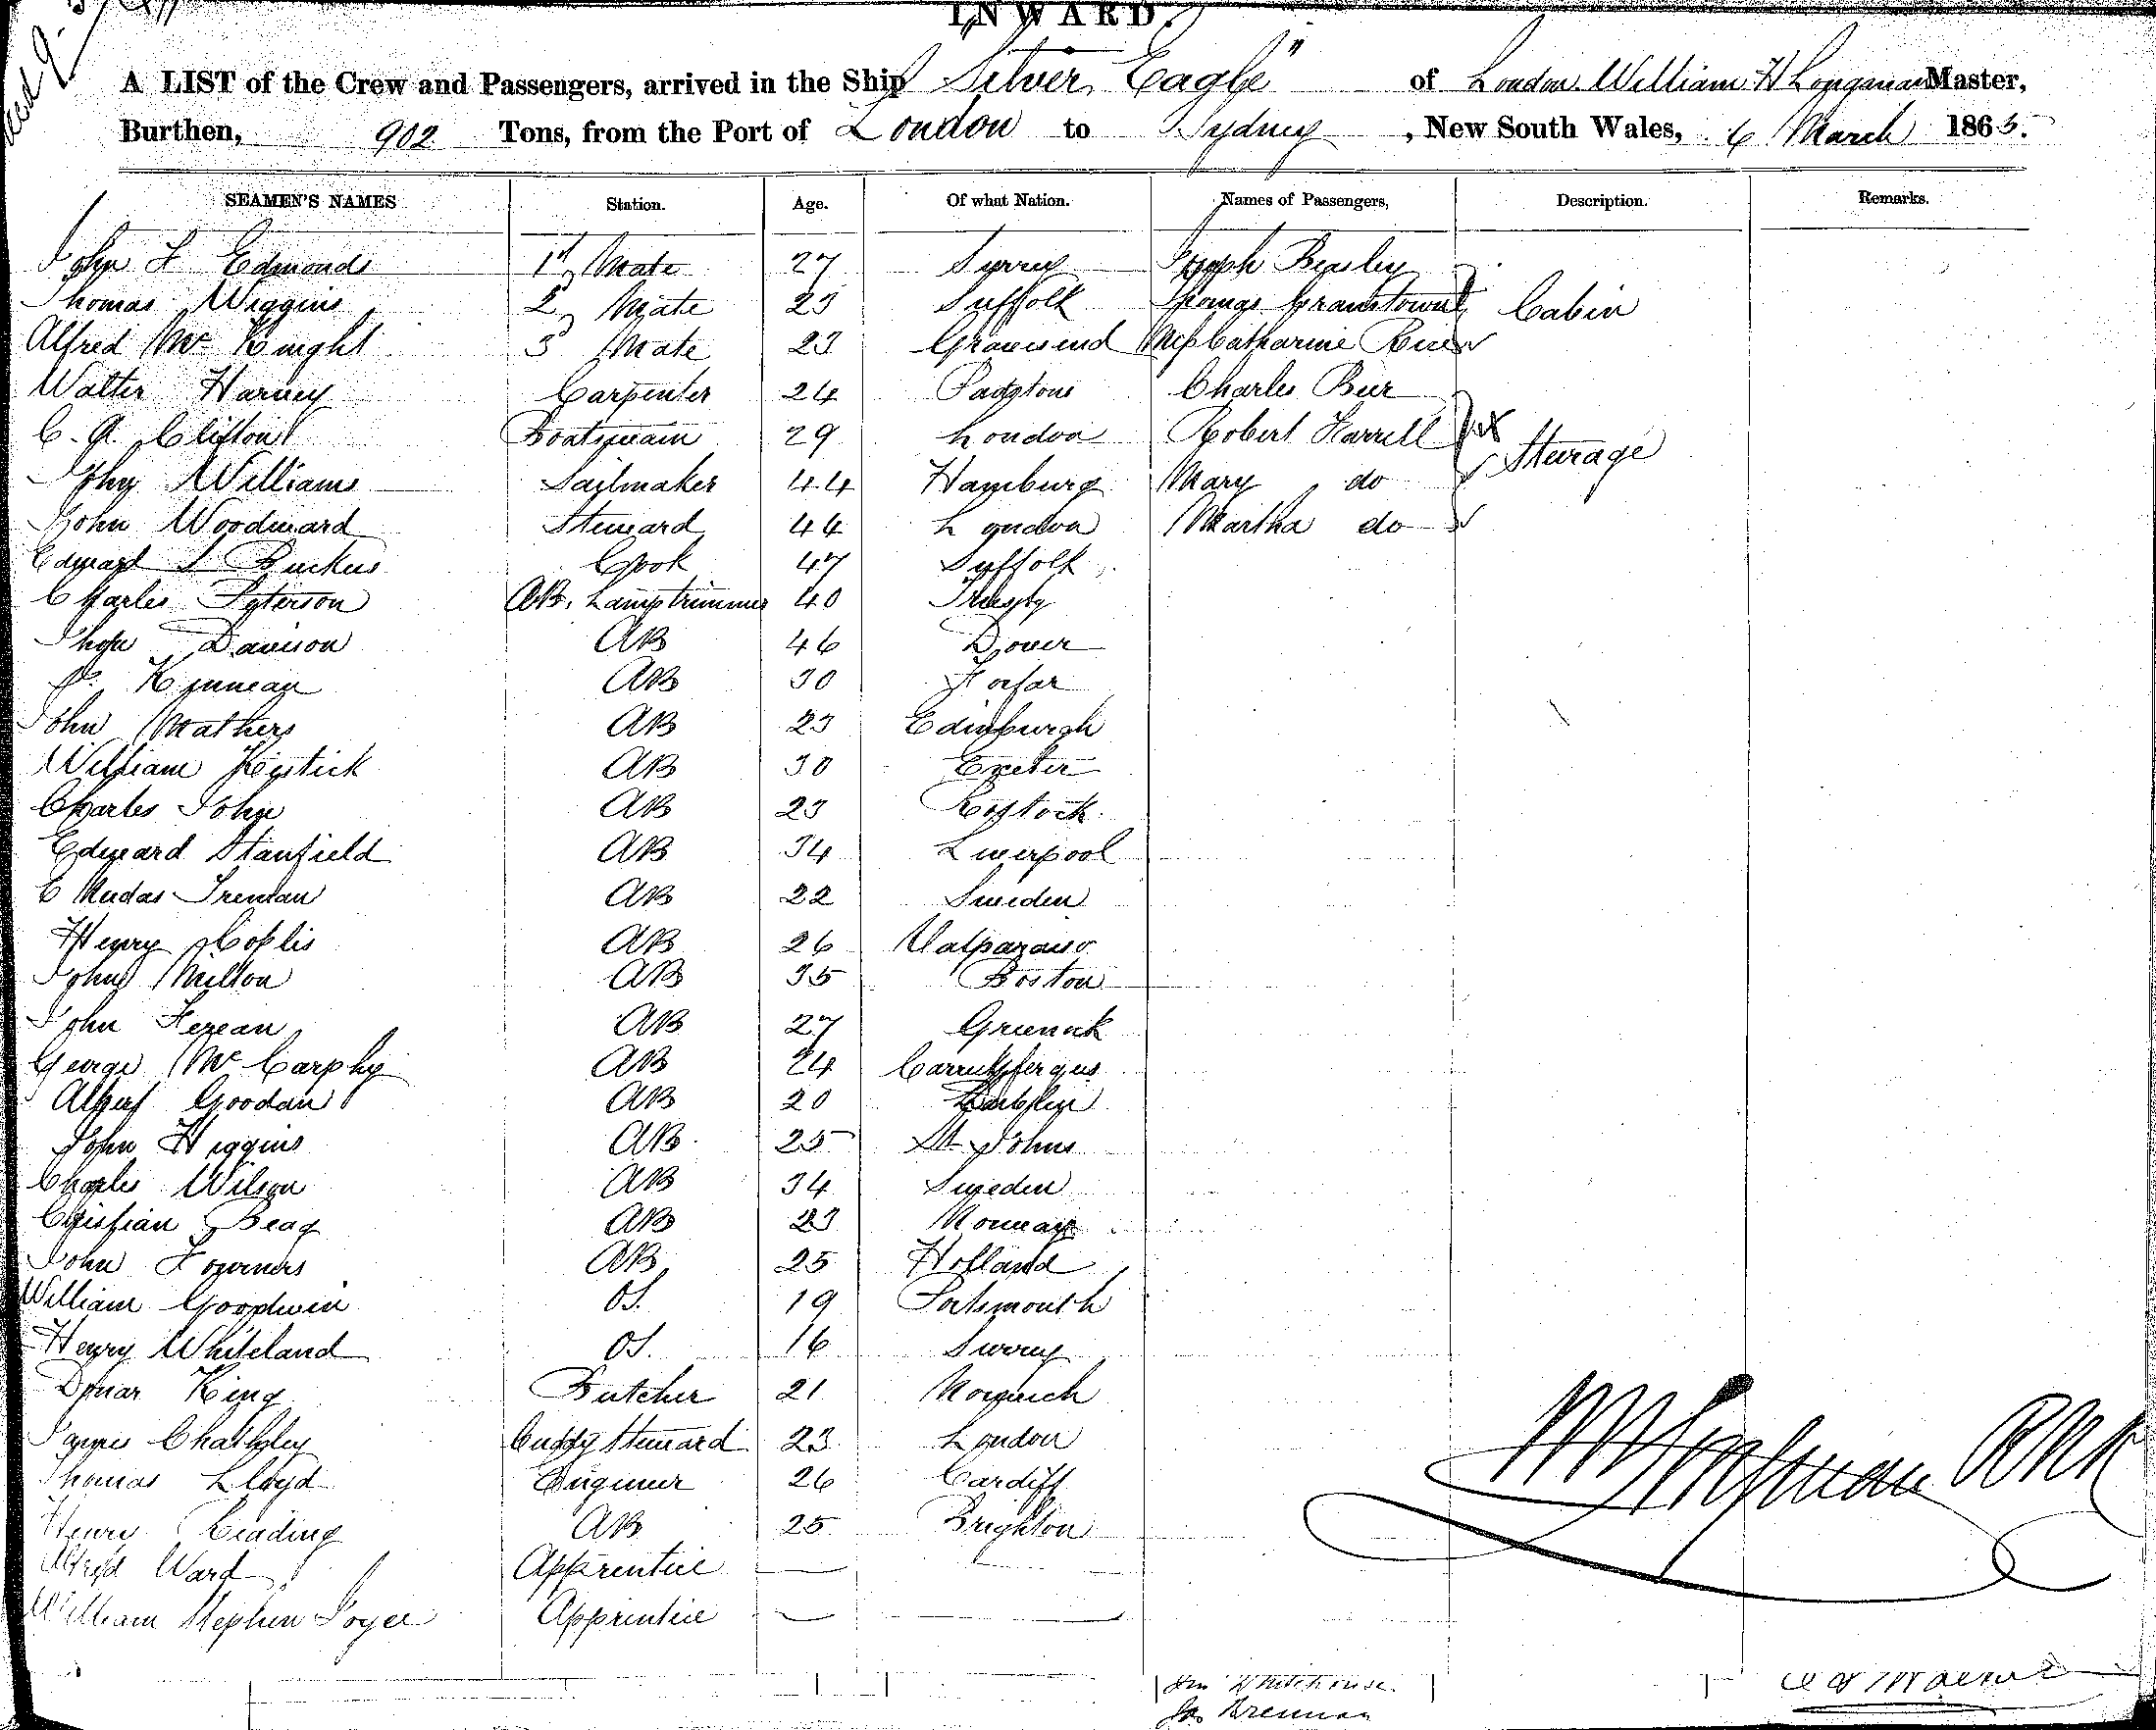 INWARD.
A LIST of the Crew and Passengers, arrived in the Ship "Silver Eagle" of London William H Longman Master,
Burthen, 902 Tons, from the Port of London to Sydney, New South Wales, 6 March 1865.
SEAMEN'S NAMES Station. Age. Of what Nation. Names of Passengers, Description. Remarks.
John F Edmonds 1st Mate 27 Surrey Joseph Beasley
Thomas Wiggins 2 Mate 23 Suffolk Thomas Cabin
Alfred Mc Knight 3 Mate 23 Gravesend Miss Catharine
Walter Harvey Carpenter 24 Charles
C. A. Clifton Boatswain 29 London Robert Harrell
John Williams Sailmaker 44 Hamburg Mary do Sturage
John Woodward Steward 44 London Martha do
Edward Cook 47 Suffolk
Charles Peterson AB. Lamptrimmer 40
John Davison AB 46 Dover
AB 30 Forfar
John Mathers AB 23 Edinburgh
William AB 30 Exeter
Charles John AB 23 Rostock
Edward Stanfield AB 34 Liverpool
AB 22 Sweden
Henry AB 26 Valparaiso
John Milton AB 35 Boston
John AB 27 Greenock
George Mc Carphy AB 24 Carrickfergus
Albert AB 20 Dublin
John Higgins AB 25 St Johns
Charles Wilson AB 34 Sweden
Christian AB 23 Norway
John AB 25 Holland
William Goodwin OS. 19 Portsmouth
Henry Whiteland OS. 16 Surrey
King Butcher 21 Norwich
James Cuddy Steward 23 London
Thomas Lloyd Engineer 26 Cardiff
Henry Reading AB 25 Brighton
Alfred Ward Apprentice
William Stephen Apprentice
Whitehouse.
Brennan